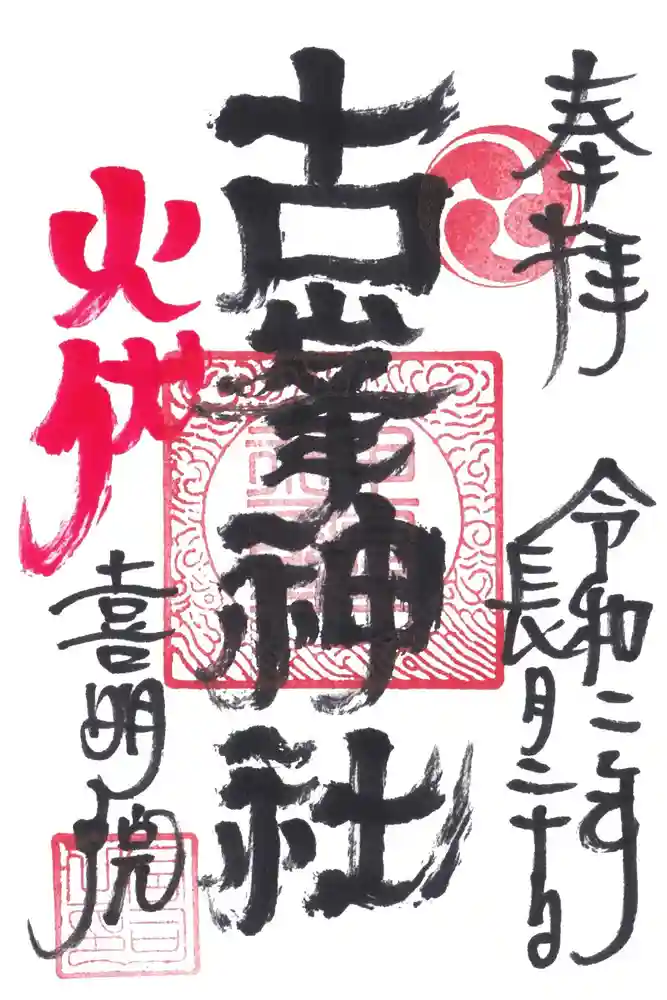 奉拝
令和二年
長月二十日
古峯神社
火伏
喜明院